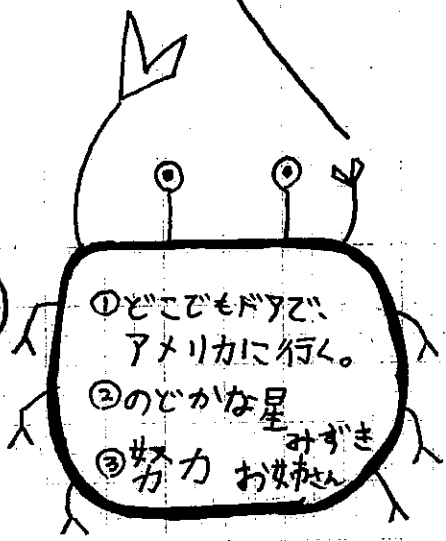 ①どこでもドアで、
アメリカに行く。
②のどかな星
③努力
みずき
お姉さん